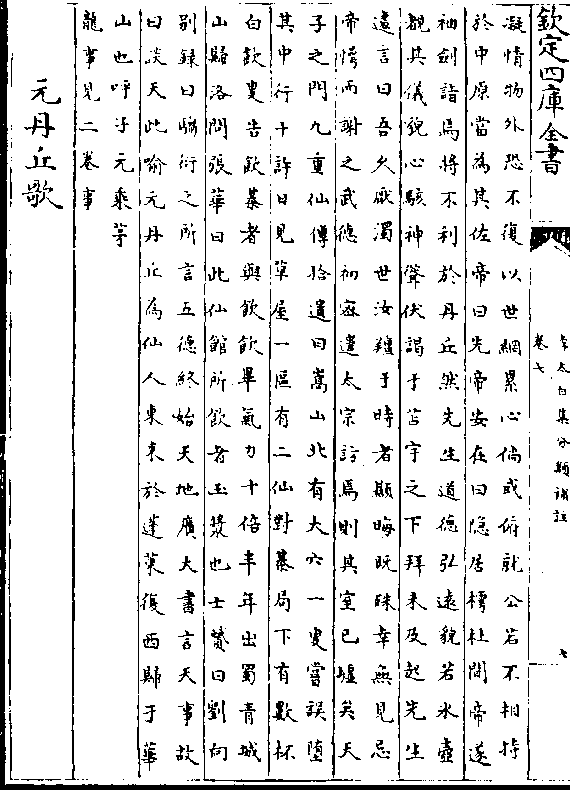 欽定四庫全書
李太白集分類補註
卷七
七
凝情物外恐不復以世網累心倘或俯就公若不相持
於中原當為其佐帝曰先帝安在曰隐居樗杜間帝遂
袖劍詣焉將不利於丹丘然先生道德弘遠貌若氷壺
覩其儀貌心駭神聳伏謁于苫宇之下拜未及起先生
遽言曰吾久厭濁世汝羶于時者顯晦既眛幸無見忌
帝愕而謝之武徳初密遣太宗訪焉則其室已墟矣天
子之門九重仙傳拾遺曰嵩山北有大穴一叟嘗誤墮
其中行十許日見草屋一區有二仙對棊局下有數杯
白飲叟告飲棊者與飲飲畢氣力十倍半年出蜀青城
山歸洛問張華曰此仙館所飲者玉漿也士贇曰劉向
别録曰騶衍之所言五德終始天地廣大書言天事故
曰談天此喻元丹丘為仙人東來於蓬萊復西歸于華
山也呼子元乘茅
龍事見二卷事
元丹丘歌